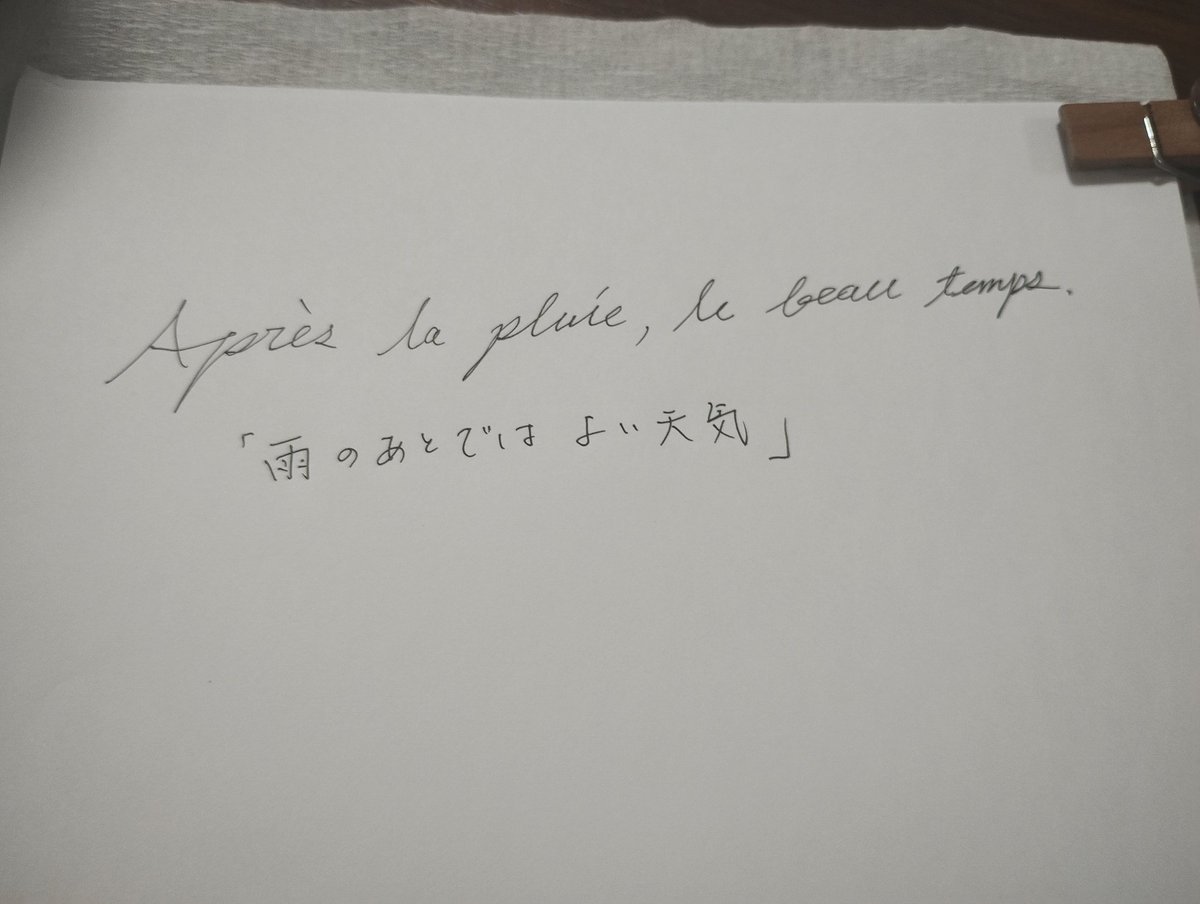 Après la pluie, le beau temps.
「雨のあとでは よい天気」